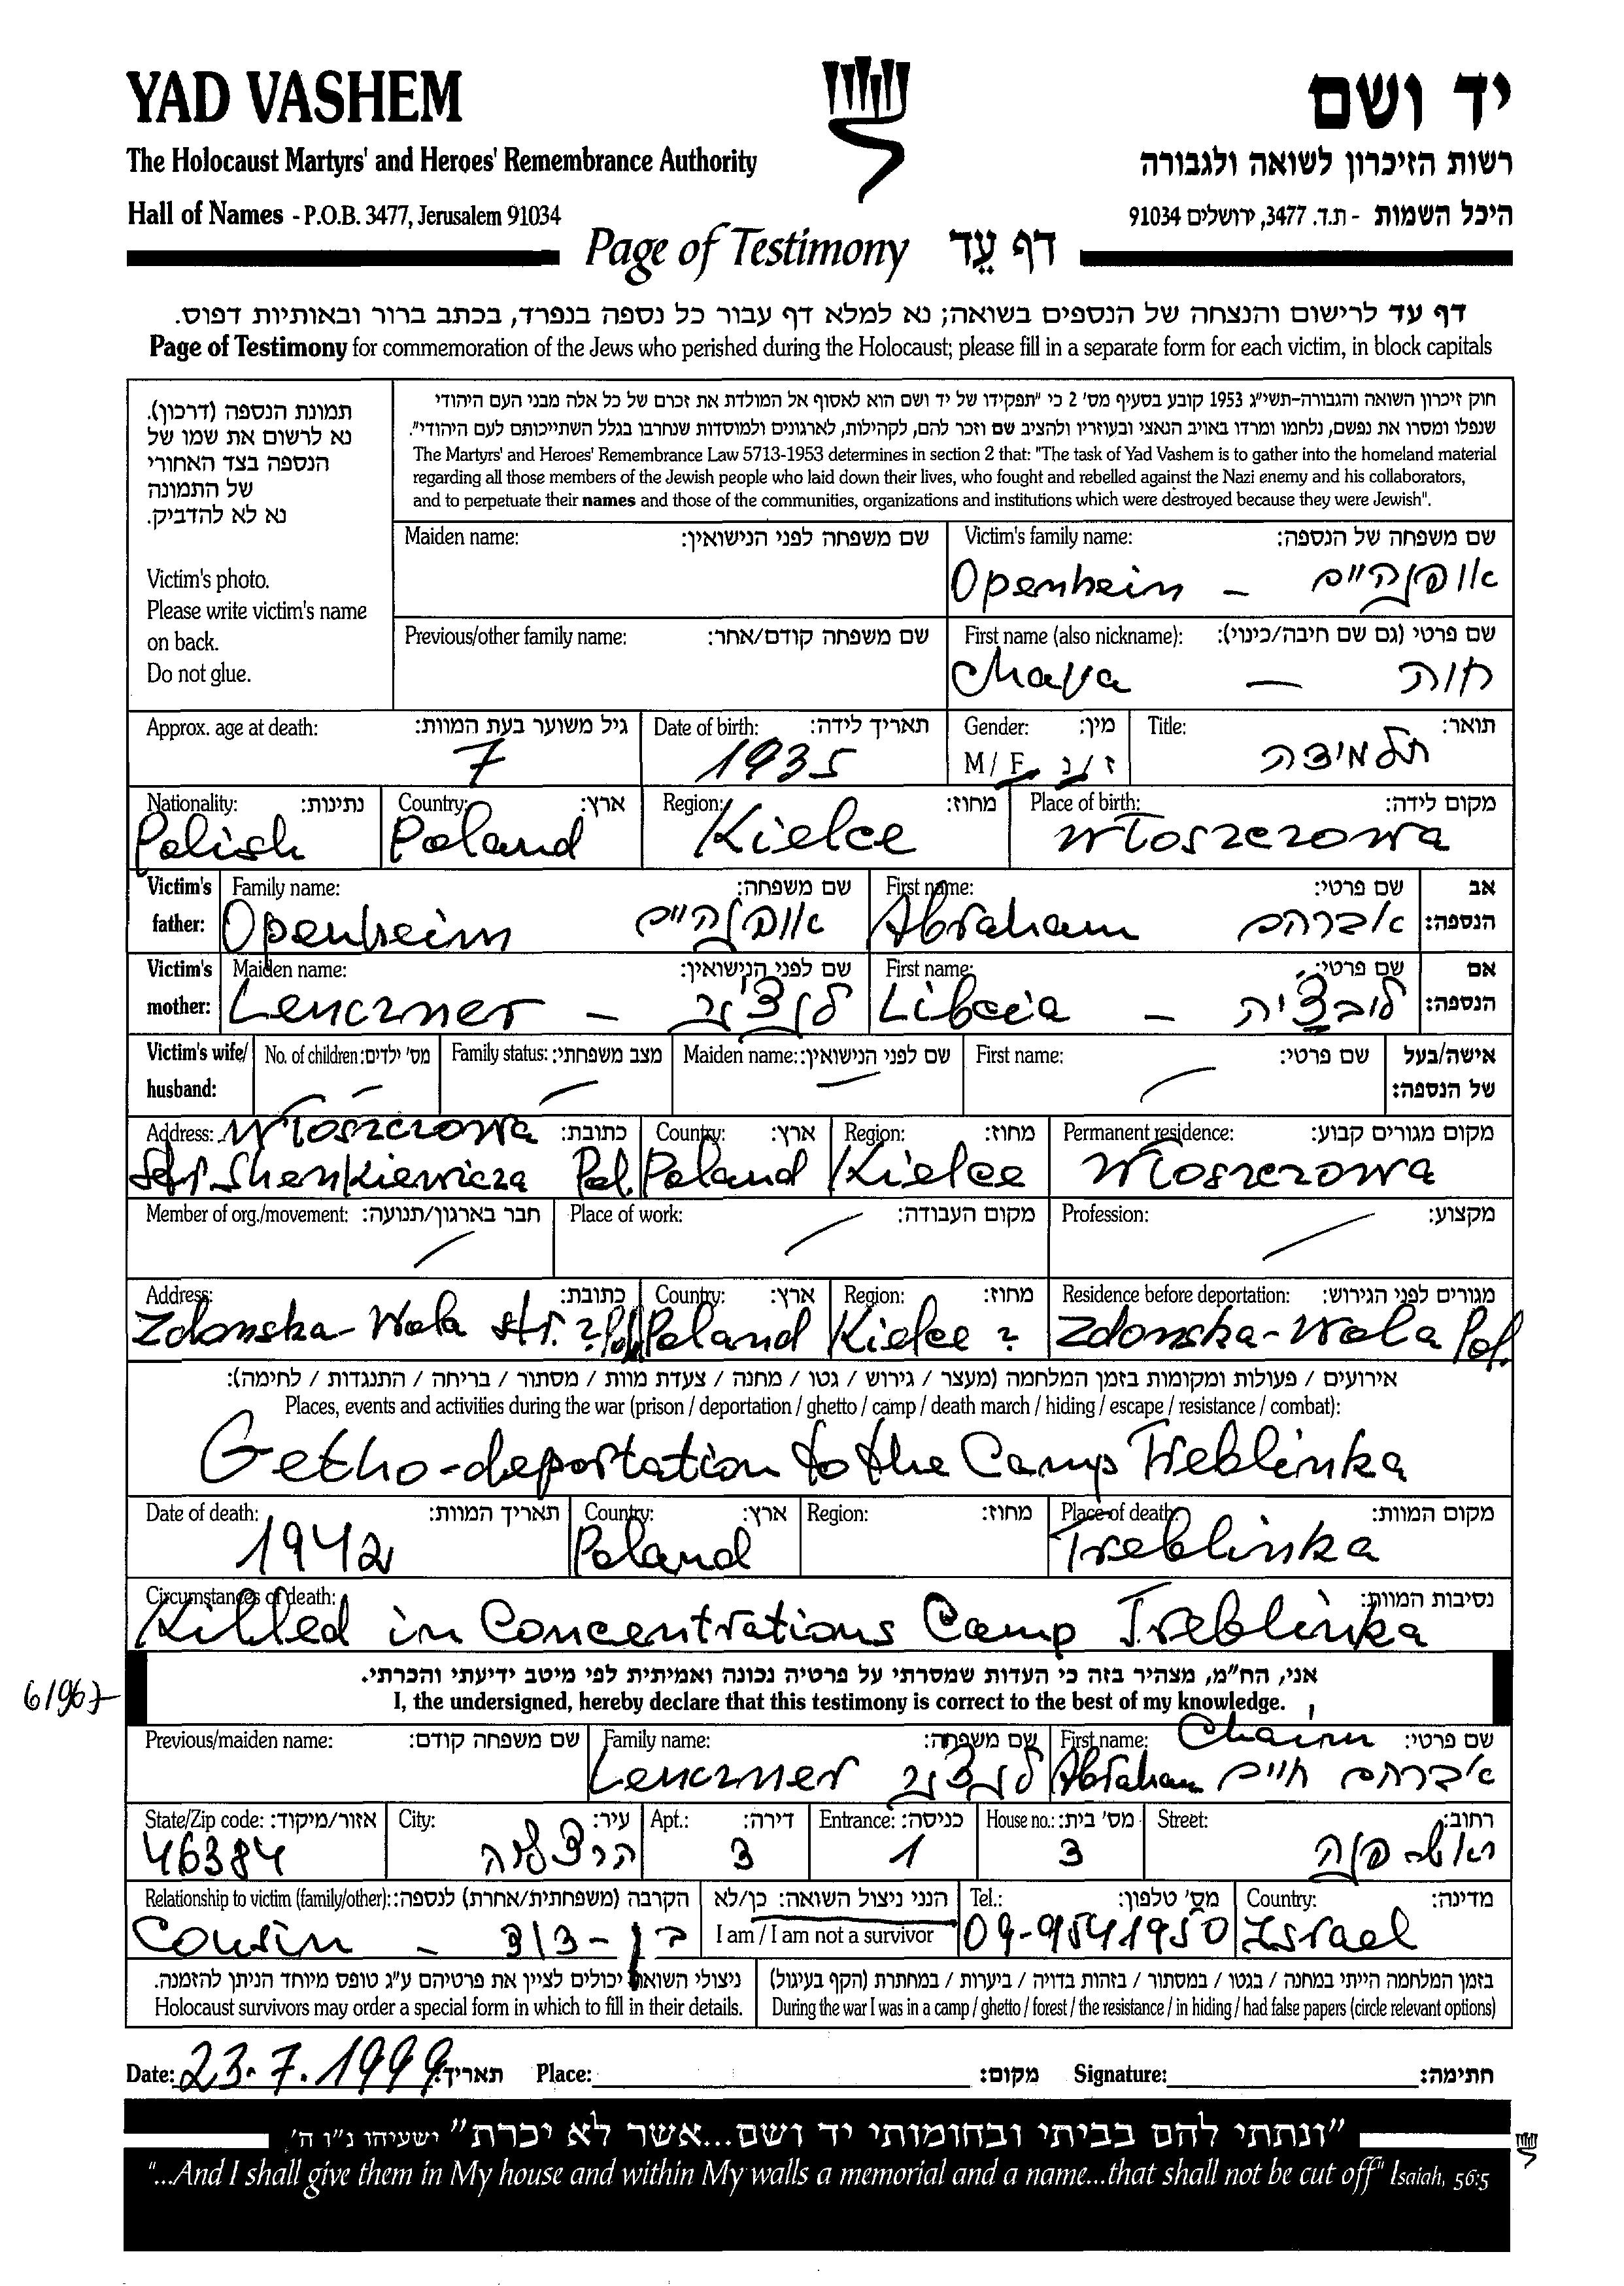 YAD VASHEM
יד ושם
The Holocaust Martyrs' and Heroes' Remembrance Authority
רשות הזיכרון לשואה ולגבורה
Hall of Names - P.O.B. 3477, Jerusalem 91034
היכל השמות - ת.ד. 3477, ירושלים 91034
Page of Testimony דף עֵד
דף עד לרישום והנצחה של הנספים בשואה; נא למלא דף עבור כל נספה בנפרד, בכתב ברור ובאותיות דפוס.
Page of Testimony for commemoration of the Jews who perished during the Holocaust; please fill in a separate form for each victim, in block capitals
תמונת הנספה (דרכון).
נא לרשום את שמו של
הנספה בצד האחורי
של התמונה
נא לא להדביק.
Victim's photo.
Please write victim's name
on back.
Do not glue.
חוק זיכרון השואה והגבורה-תשי"ג 1953 קובע בסעיף מס' 2 כי "תפקידו של יד ושם הוא לאסוף אל המולדת את זכרם של כל אלה מבני העם היהודי
שנפלו ומסרו את נפשם, נלחמו ומרדו באויב הנאצי ובעוזריו ולהציב שם וזכר להם, לקהילות, לארגונים ולמוסדות שנחרבו בגלל השתייכותם לעם היהודי".
The Martyrs' and Heroes' Remembrance Law 5713-1953 determines in section 2 that: "The task of Yad Vashem is to gather into the homeland material
regarding all those members of the Jewish people who laid down their lives, who fought and rebelled against the Nazi enemy and his collaborators,
and to perpetuate their names and those of the communities, organizations and institutions which were destroyed because they were Jewish".
Maiden name: שם משפחה לפני הנישואין:
Victim's family name: שם משפחה של הנספה:
Openheim – אופנהיים
Previous/other family name: שם משפחה קודם/אחר:
First name (also nickname): שם פרטי (גם שם חיבה/כינוי):
Chava – חוה
Approx. age at death: גיל משוער בעת המוות:
7
Date of birth: תאריך לידה:
1935
Gender: מין:
M / F ז / נ
Title: תואר:
תלמידה
Nationality: נתינות:
Polish
Country: ארץ:
Poland
Region: מחוז:
Kielce
Place of birth: מקום לידה:
Włoszczowa
Victim's father: Family name: שם משפחה:
Openheim אופנהיים
First name: שם פרטי: אב הנספה:
Abraham אברהם
Victim's mother: Maiden name: שם לפני הנישואין:
Lenczner – לנצ'נר
First name: שם פרטי: אם הנספה:
Libcia – ליבציה
Victim's wife/ husband: No. of children: מס' ילדים: Family status: מצב משפחתי: Maiden name: שם לפני הנישואין: First name: שם פרטי: אישה/בעל של הנספה:
Address: כתובת:
Włoszczowa
Shenkiewicza Pol.
Country: ארץ:
Poland
Region: מחוז:
Kielce
Permanent residence: מקום מגורים קבוע:
Włoszczowa
Member of org./movement: חבר בארגון/תנועה: Place of work: מקום העבודה: Profession: מקצוע:
Address: כתובת:
Zdonska-Wola str. ? Pol.
Country: ארץ:
Poland
Region: מחוז:
Kielce ?
Residence before deportation: מגורים לפני הגירוש:
Zdonska-Wola Pol.
אירועים / פעולות ומקומות בזמן המלחמה (מעצר / גירוש / גטו / מחנה / צעדת מוות / מסתור / בריחה / התנגדות / לחימה):
Places, events and activities during the war (prison / deportation / ghetto / camp / death march / hiding / escape / resistance / combat):
Getho-deportation to the Camp Treblinka
Date of death: תאריך המוות:
1942
Country: ארץ:
Poland
Region: מחוז:
Place of death: מקום המוות:
Treblinka
Circumstances of death: נסיבות המוות:
Killed in Concentrations Camp Treblinka
אני, הח"מ, מצהיר בזה כי העדות שמסרתי על פרטיה נכונה ואמיתית לפי מיטב ידיעתי והכרתי.
I, the undersigned, hereby declare that this testimony is correct to the best of my knowledge.
Previous/maiden name: שם משפחה קודם:
Family name: שם משפחה:
Lenczner לנצ'נר
First name: שם פרטי:
Chaim
Abraham אברהם חיים
State/Zip code: אזור/מיקוד:
46384
City: עיר:
הרצליה
Apt.: דירה:
3
Entrance: כניסה:
1
House no.: מס' בית:
3
Street: רחוב:
ראש-פנה
Relationship to victim (family/other): הקרבה (משפחתית/אחרת) לנספה:
Cousin – בן-דוד
הנני ניצול השואה: כן/לא
I am / I am not a survivor
Tel.: מס' טלפון:
09-9541950
Country: מדינה:
Israel
ניצולי השואה יכולים לציין את פרטיהם ע"ג טופס מיוחד הניתן להזמנה.
Holocaust survivors may order a special form in which to fill in their details.
בזמן המלחמה הייתי במחנה / בגטו / במסתור / בזהות בדויה / ביערות / במחתרת (הקף בעיגול)
During the war I was in a camp / ghetto / forest / the resistance / in hiding / had false papers (circle relevant options)
Date: 23.7.1999 תאריך: Place: מקום: Signature: חתימה:
"ונתתי להם בביתי ובחומותי יד ושם...אשר לא יכרת" ישעיהו נ"ו ה'
"...And I shall give them in My house and within My walls a memorial and a name...that shall not be cut off" Isaiah, 56:5